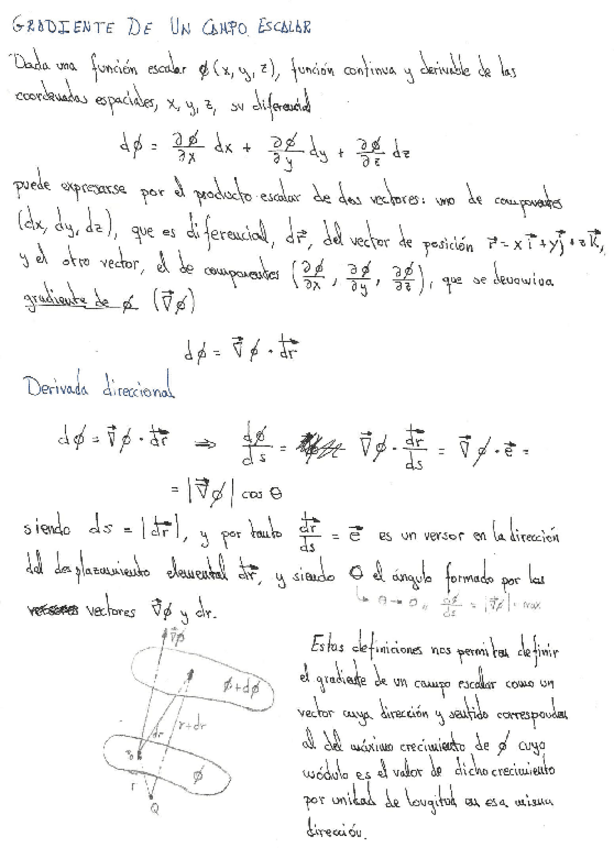 GRADIENTE DE UN CAMPO ESCALAR
Dada una función escalar ϕ(x, y, z), función continua y derivable de las
coordenadas espaciales, x, y, z, su diferencial
dϕ = ∂ϕ/∂x dx + ∂ϕ/∂y dy + ∂ϕ/∂z dz
puede expresarse por el producto escalar de dos vectores: uno de componentes
(dx, dy, dz), que es diferencial, d⃗r, del vector de posición r⃗ = x i⃗ + y j⃗ + z k⃗,
y el otro vector, el de componentes (∂ϕ/∂x, ∂ϕ/∂y, ∂ϕ/∂z), que se denomina
gradiente de ϕ (∇⃗ϕ)
dϕ = ∇⃗ϕ · d⃗r
Derivada direccional
dϕ = ∇⃗ϕ · d⃗r ⇒ dϕ/ds = ∇⃗ϕ · d⃗r/ds = ∇⃗ϕ · e⃗ =
= |∇⃗ϕ| cos θ
siendo ds = |d⃗r|, y por tanto d⃗r/ds = e⃗ es un versor en la dirección
del desplazamiento elemental d⃗r, y siendo θ el ángulo formado por los
vectores ∇⃗ϕ y dr.
↳ θ → 0 dϕ/ds = |∇⃗ϕ| · max
∇⃗ϕ
ϕ+dϕ
dr
r+dr
ϕ
r
Q
Estas definiciones nos permiten definir
el gradiente de un campo escalar como un
vector cuya dirección y sentido corresponden
al del máximo crecimiento de ϕ cuyo
módulo es el valor de dicho crecimiento
por unidad de longitud en esa misma
dirección.